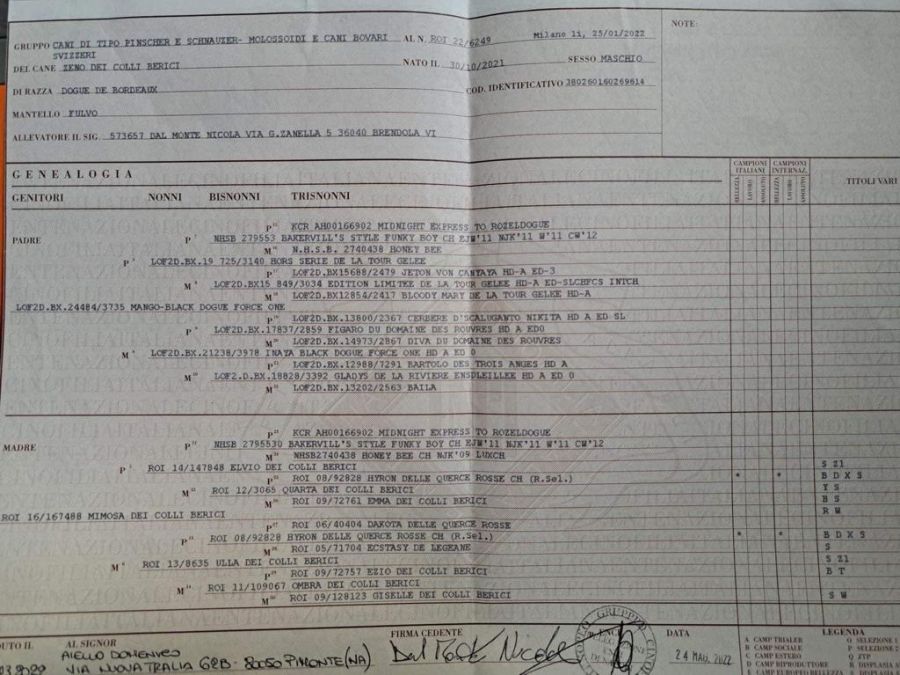 NOTE:
GRUPPO CANI DI TIPO PINSCHER E SCHNAUZER- MOLOSSOIDI E CANI BOVARI AL N. ROI 22/6249 Milano li, 25/01/2022
SVIZZERI
DEL CANE ZENO DEI COLLI BERICI NATO IL 30/10/2021 SESSO MASCHIO
DI RAZZA DOGUE DE BORDEAUX COD. IDENTIFICATIVO 380260160269614
MANTELLO FULVO
ALLEVATORE IL SIG. 573657 DAL MONTE NICOLA VIA G.ZANELLA 5 36040 BRENDOLA VI
GENEALOGIA
CAMPIONI ITALIANI CAMPIONI INTERNAZ.
BELLEZZA LAVORO ASSOLUTO BELLEZZA LAVORO ASSOLUTO
TITOLI VARI
GENITORI NONNI BISNONNI TRISNONNI
P'" KCR AH00166902 MIDNIGHT EXPRESS TO ROZELDOGUE
PADRE P" NHSB 279553 BAKERVILL'S STYLE FUNKY BOY CH EJW'11 NJK'11 W'11 CW'12
M'" N.H.S.B. 2740438 HONEY BEE
P' LOF2D.BX.19 725/3140 HORS SERIE DE LA TOUR GELEE
P'" LOF2D.BX15688/2479 JETON VON CANTAYA HD-A ED-3
M" LOF2D.BX15 849/3034 EDITION LIMITEE DE LA TOUR GELEE HD-A ED-SLCHFCS INTCH
M'" LOF2D.BX12854/2417 BLOODY MARY DE LA TOUR GELEE HD-A
LOF2D.BX.24484/3735 MANGO-BLACK DOGUE FORCE ONE
P'" LOF2D.BX.13800/2367 CERBERE D'SCALUGANTO NIKITA HD A ED SL
P" LOF2D.BX.17837/2859 FIGARO DU DOMAINE DES ROUVRES HD A ED0
M'" LOF2D.BX.14973/2867 DIVA DU DOMAINE DES ROUVRES
M' LOF2D.BX.21238/3978 INATA BLACK DOGUE FORCE ONE HD A ED 0
P'" LOF2D.BX.12988/7291 BARTOLO DES TROIS ANGES HD A
M" LOF2.D.BX.18828/3392 GLADYS DE LA RIVIERE ENSDLEILLEE HD A ED 0
M'" LOF2D.BX.13202/2563 BAILA
P'" KCR AH00166902 MIDNIGHT EXPRESS TO ROZELDOGUE
MADRE P" NHSB 2795530 BAKERVILL'S STYLE FUNKY BOY CH EJW'11 NJK'11 W'11 CW'12
M'" NHSB2740438 HONEY BEE CH NJK'09 LUXCH
P' ROI 14/147848 ELVIO DEI COLLI BERICI S Z1
P'" ROI 08/92828 HYRON DELLE QUERCE ROSSE CH (R.Sel.) * * B D X S
M" ROI 12/3065 QUARTA DEI COLLI BERICI T S
M'" ROI 09/72761 EMMA DEI COLLI BERICI B S
ROI 16/167488 MIMOSA DEI COLLI BERICI R W
P'" ROI 06/40404 DAKOTA DELLE QUERCE ROSSE
P" ROI 08/92828 BYRON DELLE QUERCE ROSSE CH (R.Sel.) * * B D X S
M'" ROI 05/71704 ECSTASY DE LEGEANE S
M' ROI 13/8635 ULLA DEI COLLI BERICI S Z1
P'" ROI 09/72757 EZIO DEI COLLI BERICI B T
M" ROI 11/109067 OMBRA DEI COLLI BERICI
M'" ROI 09/128123 GISELLE DEI COLLI BERICI S W
DUTO IL AL SIGNOR FIRMA CEDENTE DATA LEGENDA
AIELLO DOMENICO Dal Monte Nicola 24 MAG. 2022
VIA NUOVA TRALIA 62B - 80050 PIMONTE (NA)
A CAMP TRIALER O SELEZIONE 1
B CAMP SOCIALE P SELEZIONE 2
C CAMP ESTERO Q ZTP
D CAMP RIPRODUTTORE R DISPLASIA
E CAMP EUROPEO BELLEZZA